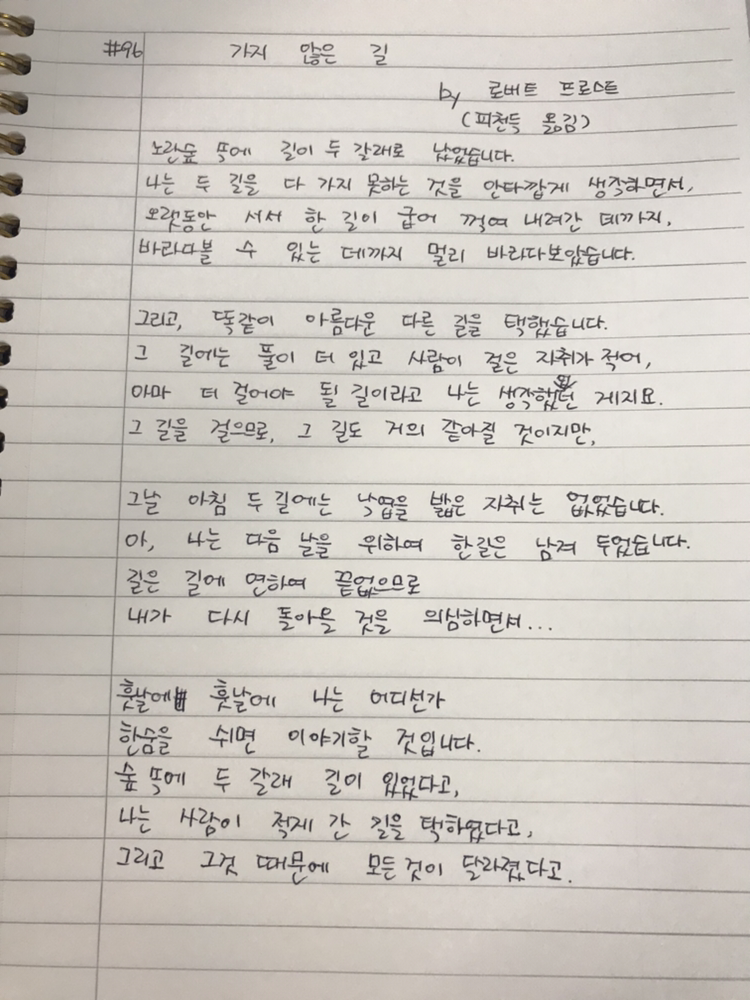 #96 가지 않은 길
by 로버트 프로스트
(피천득 옮김)
노란숲 속에 길이 두 갈래로 났었습니다.
나는 두 길을 다 가지 못하는 것을 안타깝게 생각하면서,
오랫동안 서서 한 길이 굽어 꺾여 내려간 데까지,
바라다볼 수 있는 데까지 멀리 바라다보았습니다.
그리고, 똑같이 아름다운 다른 길을 택했습니다.
그 길에는 풀이 더 있고 사람이 걸은 자취가 적어,
아마 더 걸어야 될 길이라고 나는 생각했던 게지요.
그 길을 걸으므로, 그 길도 거의 같아질 것이지만,
그날 아침 두 길에는 낙엽을 밟은 자취는 없었습니다.
아, 나는 다음 날을 위하여 한길은 남겨 두었습니다.
길은 길에 연하여 끝없으므로
내가 다시 돌아올 것을 의심하면서...
훗날에 훗날에 나는 어디선가
한숨을 쉬면 이야기할 것입니다.
숲 속에 두 갈래 길이 있었다고,
나는 사람이 적게 간 길을 택하였다고,
그리고 그것 때문에 모든것이 달라졌다고.